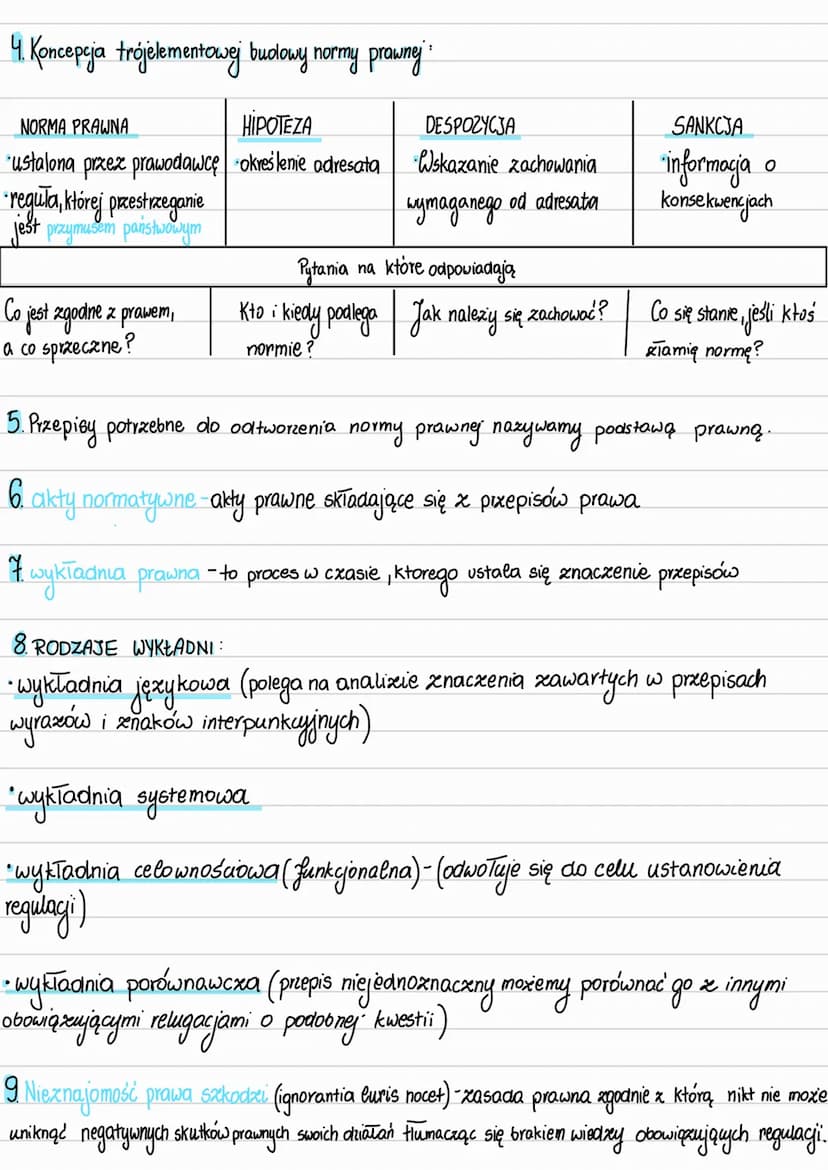 4. Koncepcja trójelementowej budowy normy prawnej:
NORMA PRAWNA
•ustalona przez prawodawcę
•reguła, której przestrzeganie
jest przymusem państwowym
HIPOTEZA
•określenie adresata
DESPOZYCJA
•Wskazanie zachowania
wymaganego od adresata
SANKCJA
•informacja o
konsekwencjach
Pytania na które odpowiadają
Co jest zgodne z prawem,
a co sprzeczne?
Kto i kiedy podlega
normie?
Jak należy się zachować?
Co się stanie, jeśli ktoś
złamię normę?
5. Przepisy potrzebne do odtworzenia normy prawnej nazywamy podstawą prawną.
6. akty normatywne - akty prawne składające się z przepisów prawa
7. wykładnia prawna - to proces w czasie, ktorego ustala się znaczenie przepisów
8. RODZAJE WYKŁADNI:
•wykładnia językowa (polega na analizie znaczenia zawartych w przepisach
wyrazów i znaków interpunkcyjnych)
•wykładnia systemowa
•wykładnia celownościowa (funkcjonalna) - (odwołuje się do celu ustanowienia
regulacji)
•wykładnia porównawcza (przepis niejednoznaczny możemy porównać go z innymi
obowiązującymi relugacjami o podobnej kwestii)
9. Nieznajomość prawa szkodzi (ignorantia euris nocet) - zasada prawna zgodnie z którą nikt nie może
uniknąć negatywnych skutków prawnych swoich działań tłumacząc się brakiem wiedzy obowiązujących regulacji.